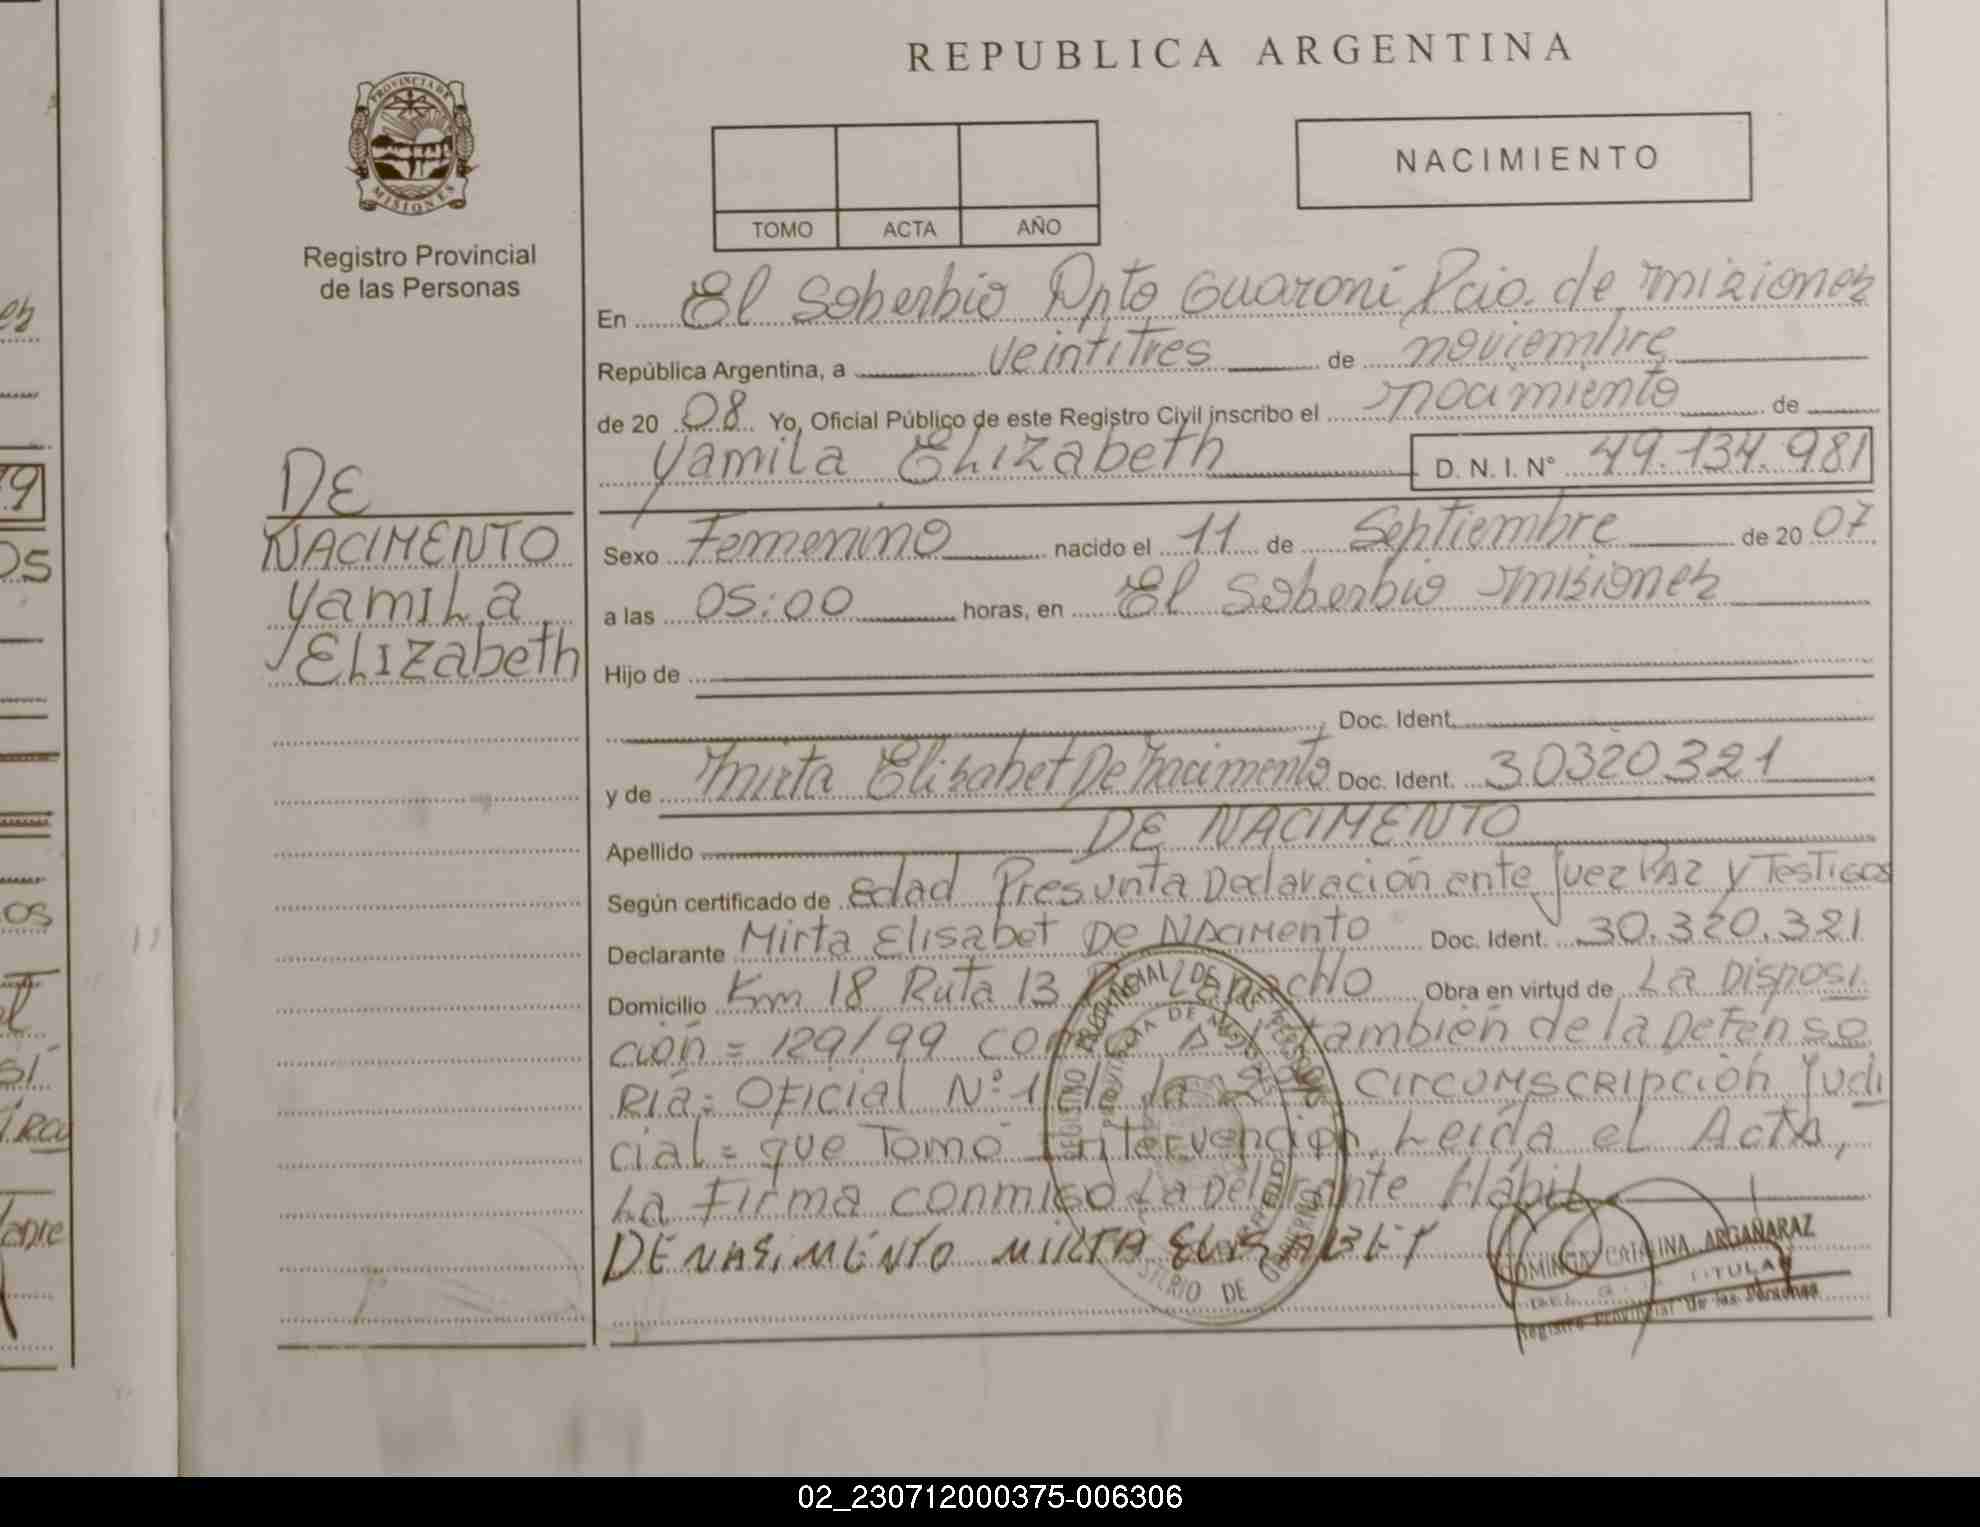 REPUBLICA ARGENTINA
PROVINCIA DE
MISIONES
Registro Provincial
de las Personas
TOMO ACTA AÑO
NACIMIENTO
En El Soberbio Dpto Guaraní Pcia. de Misiones
República Argentina, a veintitres de noviembre
de 20 08 Yo, Oficial Público de este Registro Civil inscribo el nacimiento de
Yamila Elizabeth D. N. I. N° 49.134.981
DE
NACIMENTO
Yamila
Elizabeth
Sexo Femenino nacido el 11 de Septiembre de 20 07
a las 05:00 horas, en El Soberbio Misiones
Hijo de
Doc. Ident.
y de Mirta Elisabet De Nacimento Doc. Ident. 30320321
Apellido DE NACIMENTO
Según certificado de edad Presunta Declaración ante Juez PAZ y Testigos
Declarante Mirta Elisabet De NAcimento Doc. Ident. 30.320.321
Domicilio Km 18 Ruta 13 Obra en virtud de La Disposi
ción = 129/99 como también de la Defenso
Ría = Oficial N°:1 de la Circumscripción Judi
cial = que Tomó Intervención. Leída el Acta,
La Firma conmigo La Hábil
DE NASIMENTO MIRTA ELISABET
REGISTRO PROVINCIAL DE LAS PERSONAS
PROVINCIA DE MISIONES
MINISTERIO DE GOBIERNO
DOMINGA CATALINA ARGAÑARAZ
TITULAR
Registro Provincial de las Personas
02_230712000375-006306